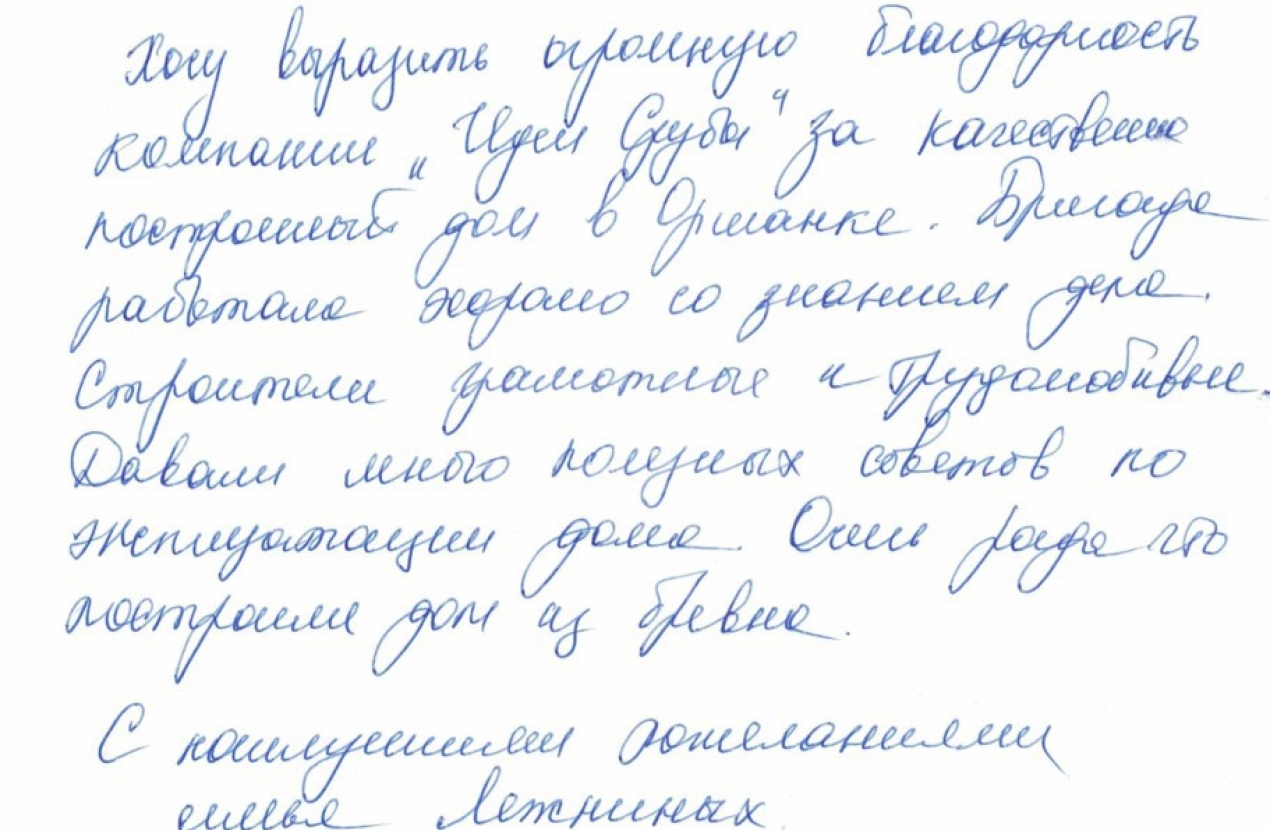 Хочу выразить огромную благодарность
компании "Идеи Сруба" за качественно
построенный дом в Оршанке. Бригада
работала со знанием дела.
Строители грамотные и трудолюбивые.
Давали много полезных советов по
эксплуатации дома. Очень рада что
построили дом из бревна.
С наилучшими пожеланиями
семья Лежниных